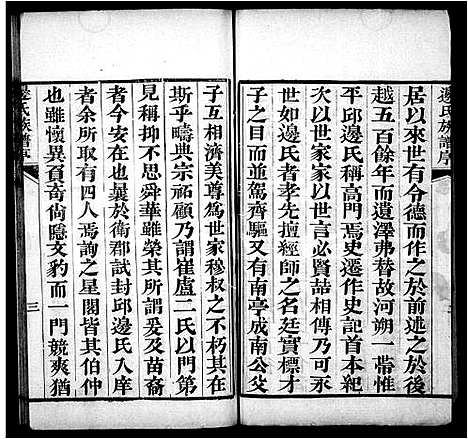 邊氏族譜序
居以來世有令德而作之於前述之於後
越五百餘年而遺澤弗替故河朔一帶惟
平邱邊氏稱高門焉史遷作史記首本紀
次以世家家以世言必賢喆相傳乃可永
世如邊氏者孝先擅經師之名廷實標才
子之目並駕齊驅又有南亭成南公父
子互相濟美尊為世家穆叔之不朽其在
斯乎疇典宗祏顧乃謂崔盧二氏以門第
見稱抑不思舜華雖榮其所謂爰及苗裔
者今安在也曩於衛郡試封邱邊氏入庠
者余所取有四人焉詢之星閣皆其伯仲
也雖懷異百奇尚隱文豹而一門競爽猶
邊氏族譜序
三